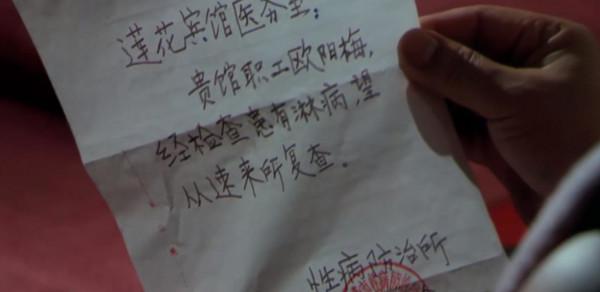 莲花宾馆医务室:
贵馆职工欧阳梅,
经检查患有淋病,望
从速来所复查。
性病防治所